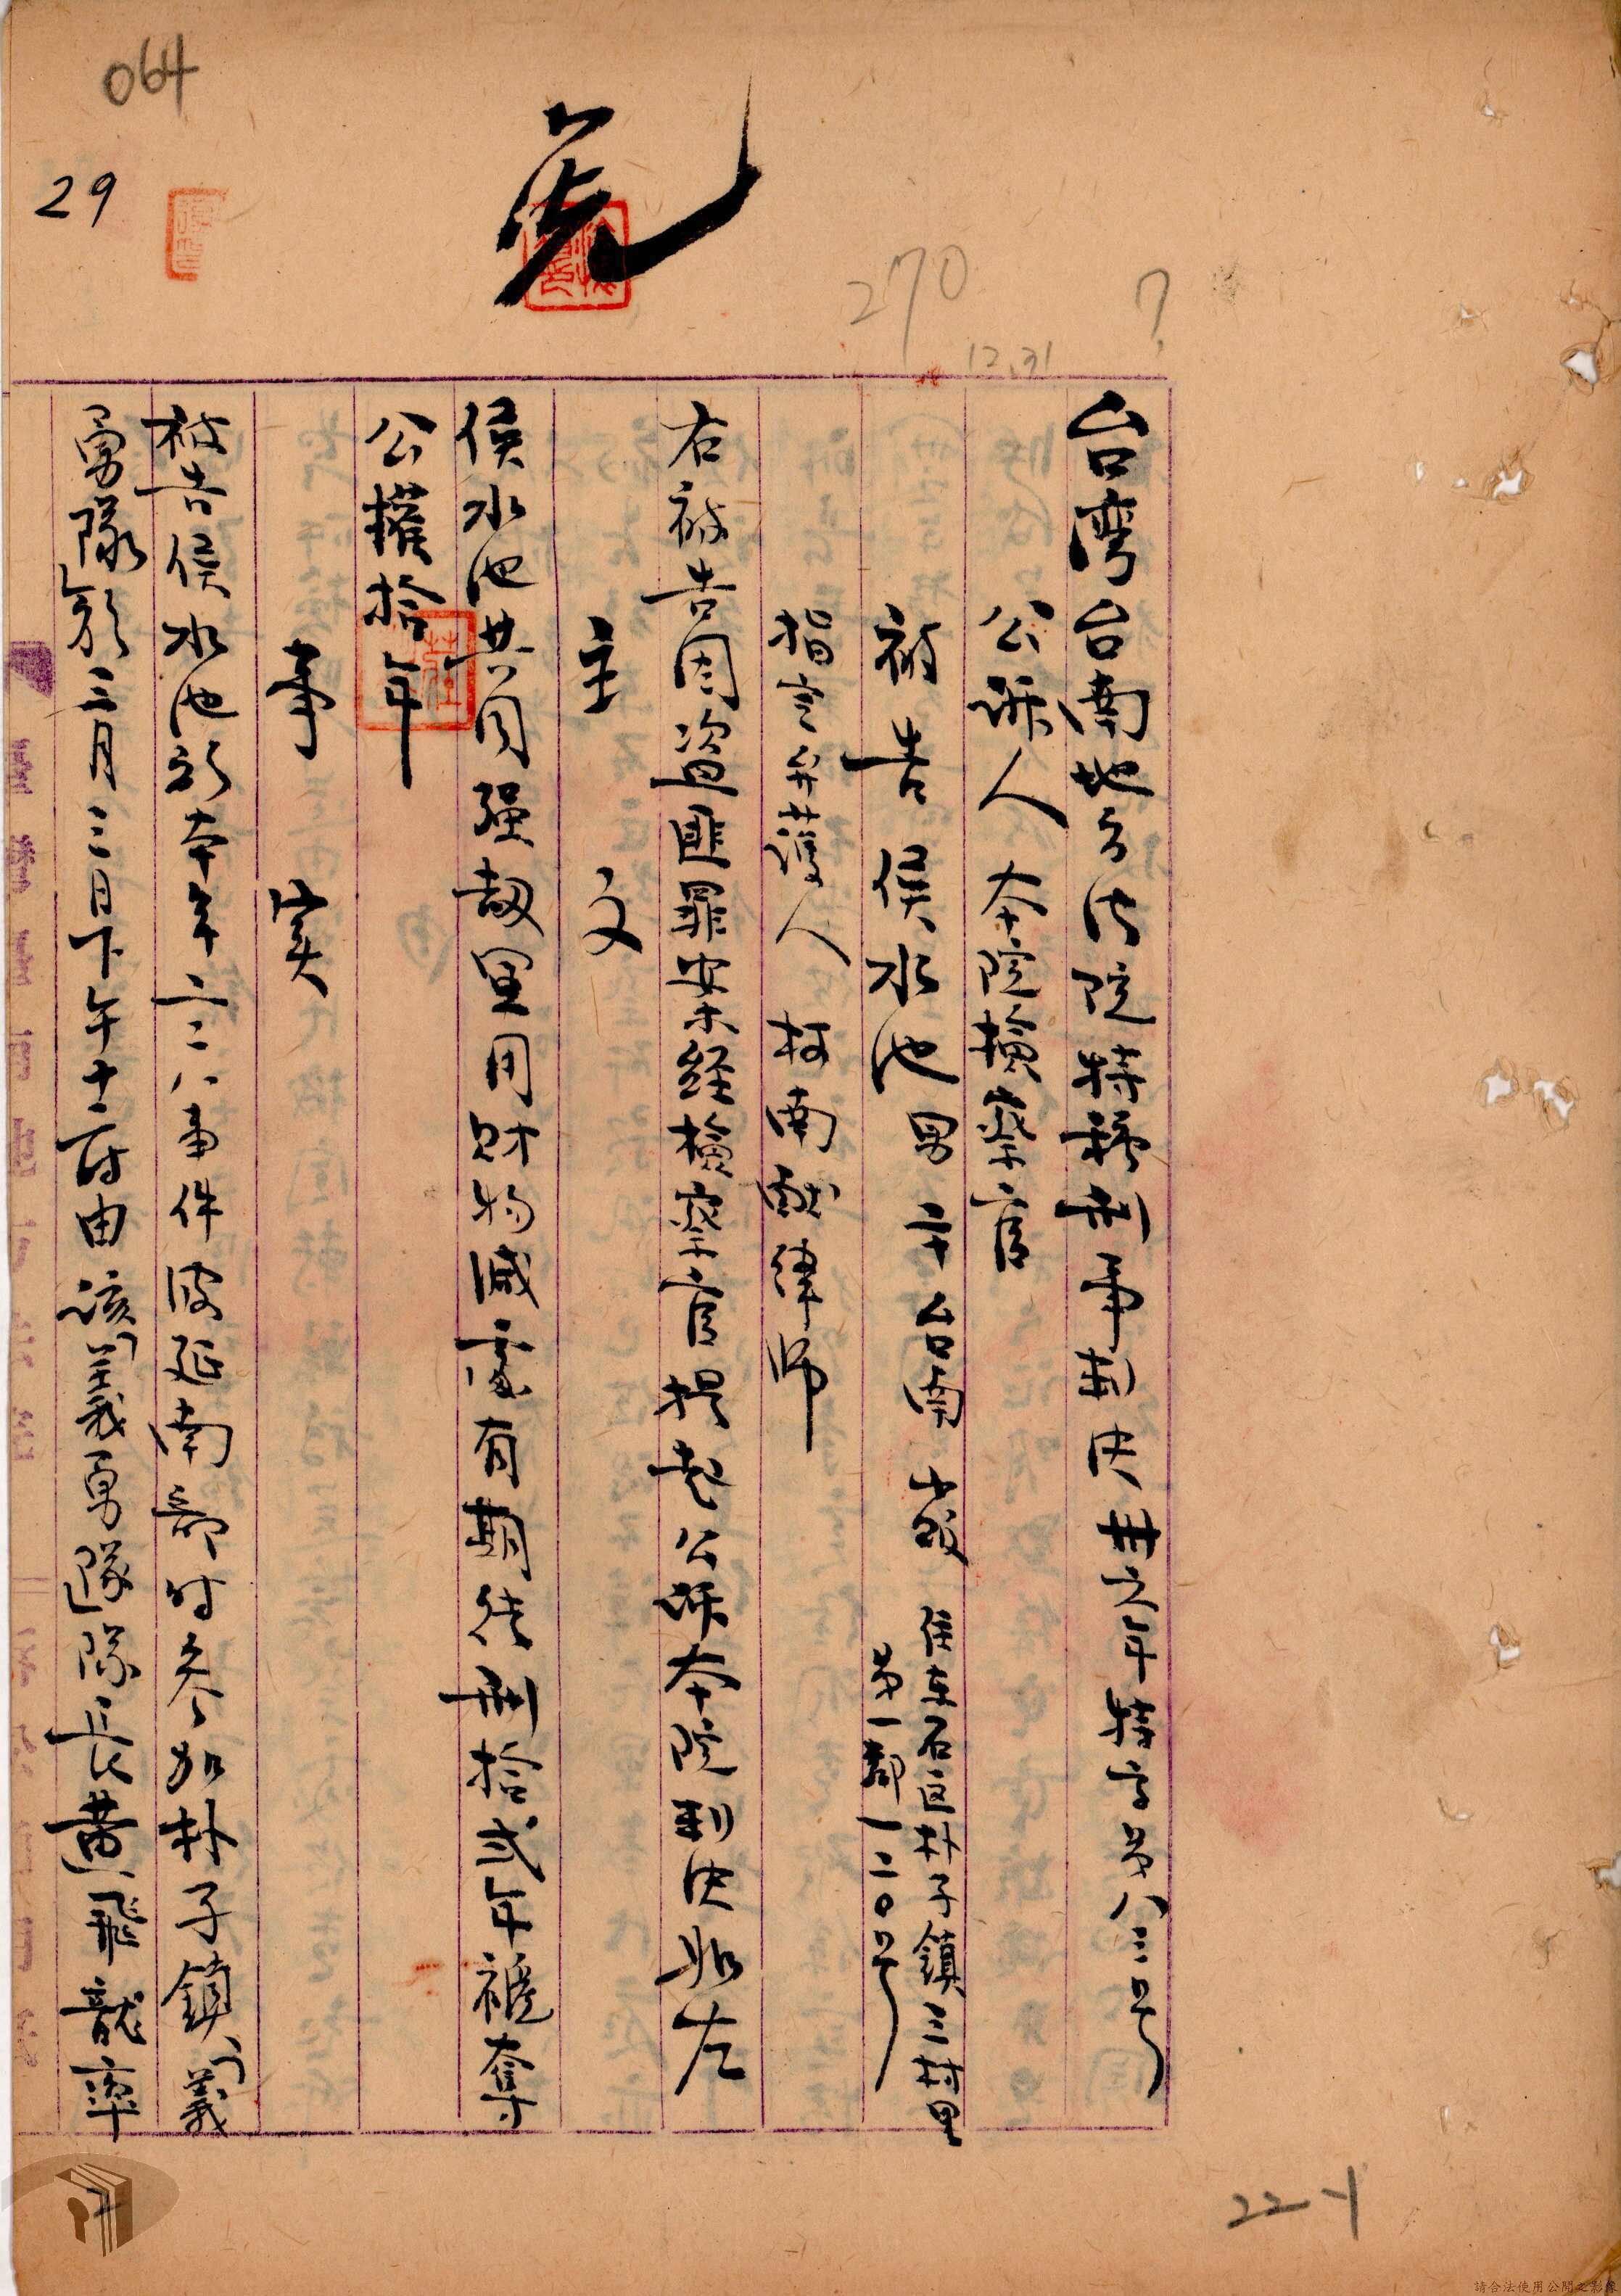 064
29
270
?
12.31
台湾台南地方法院特種刑事判决卅六年特字第八三号
公訴人 本院檢察官
被告 侯水池 男 台南
住東石区朴子鎮三村里
第一鄰一二〇号
指定弁護人 柯南献律师
右被告因盗匪罪案経檢察官提起公訴本院判决如左
主 文
侯水池共同强刼軍用財物减處有期徒刑拾弍年褫奪
公權拾年
事 实
被告侯水池於本年二二八事件波延南部时参加朴子鎮「義
勇隊」於三月三日下午十二时由該「義勇隊」隊長黄飛龍率
22-1
請合法使用公開之影像